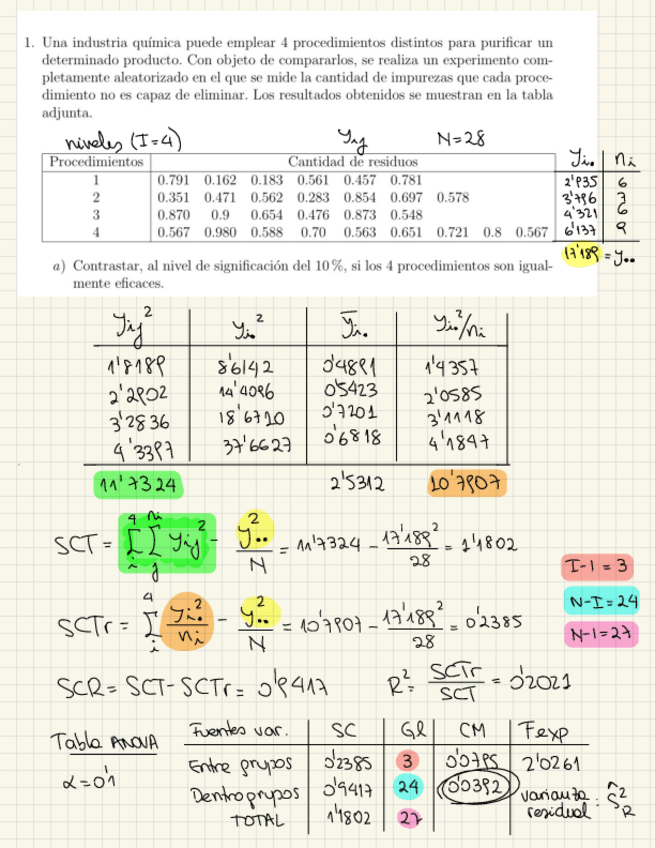 1. Una industria química puede emplear 4 procedimientos distintos para purificar un
determinado producto. Con objeto de compararlos, se realiza un experimento com-
pletamente aleatorizado en el que se mide la cantidad de impurezas que cada proce-
dimiento no es capaz de eliminar. Los resultados obtenidos se muestran en la tabla
adjunta.
niveles (I=4) yij N=28
Procedimientos Cantidad de residuos yi. ni
1 0.791 0.162 0.183 0.561 0.457 0.781 2'935 6
2 0.351 0.471 0.562 0.283 0.854 0.697 0.578 3'796 7
3 0.870 0.9 0.654 0.476 0.873 0.548 4'321 6
4 0.567 0.980 0.588 0.70 0.563 0.651 0.721 0.8 0.567 6'137 9
17'189 = y..
a) Contrastar, al nivel de significación del 10 %, si los 4 procedimientos son igual-
mente eficaces.
yij² yi.² ȳi. yi.²/ni
1'8189 8'6142 0'4891 1'4357
2'2902 14'4096 0'5423 2'0585
3'2836 18'6710 0'7201 3'1118
4'3397 37'6627 0'6818 4'1847
11'7324 2'5312 10'7907
SCT = Σ Σ yij² - y..²/N = 11'7324 - 17'189²/28 = 1'1802
I-1 = 3
N-I = 24
SCTr = Σ yi.²/ni - y..²/N = 10'7907 - 17'189²/28 = 0'2385
N-1 = 27
SCR = SCT - SCTr = 0'9417 R² = SCTr/SCT = 0'2021
Tabla ANOVA Fuentes var. SC Gl CM Fexp
α = 0'1 Entre grupos 0'2385 3 0'0795 2'0261
Dentro grupos 0'9417 24 0'0392 varianza residual: Ŝ²R
TOTAL 1'1802 27